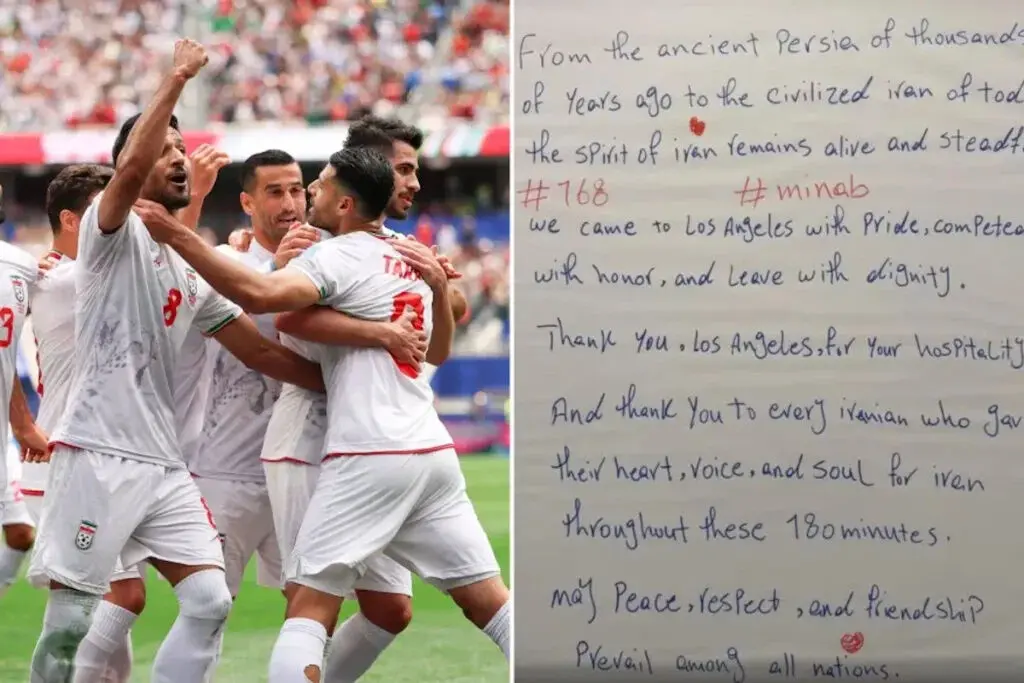 8
From the ancient Persia of thousands
of years ago to the civilized iran of tod
the spirit of iran remains alive and steadf
#168 #minab
we came to Los Angeles with Pride, competed
with honor, and Leave with dignity.
Thank You, Los Angeles, for Your hospitality
And thank You to every iranian who gav
their heart, voice, and soul for iran
throughout these 180 minutes.
may Peace, respect, and friendship
Prevail among all nations.